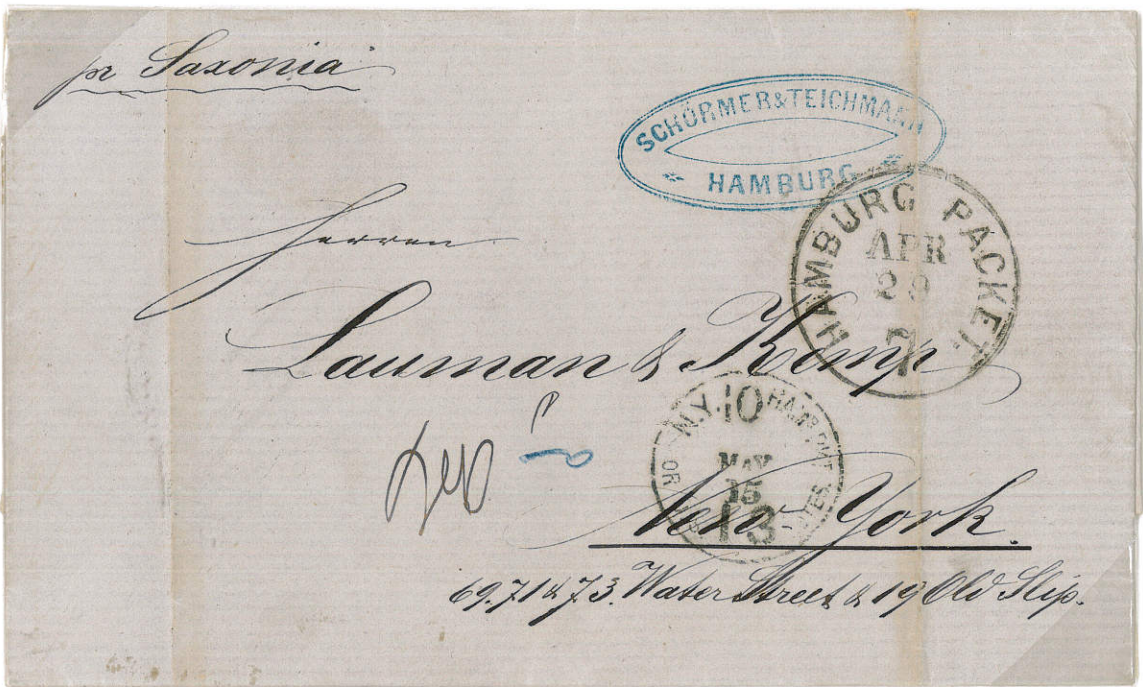 pr Saxonia
SCHÖRMER & TEICHMANN
HAMBURG
HAMBURG PACKET.
APR
29
7
Herren
Lauman & Kemp
N.Y. 10 HAMB. PKT.
MAY
15
OR
13
New York.
69. 71 & 73. Water Street & 19 Old Slip.